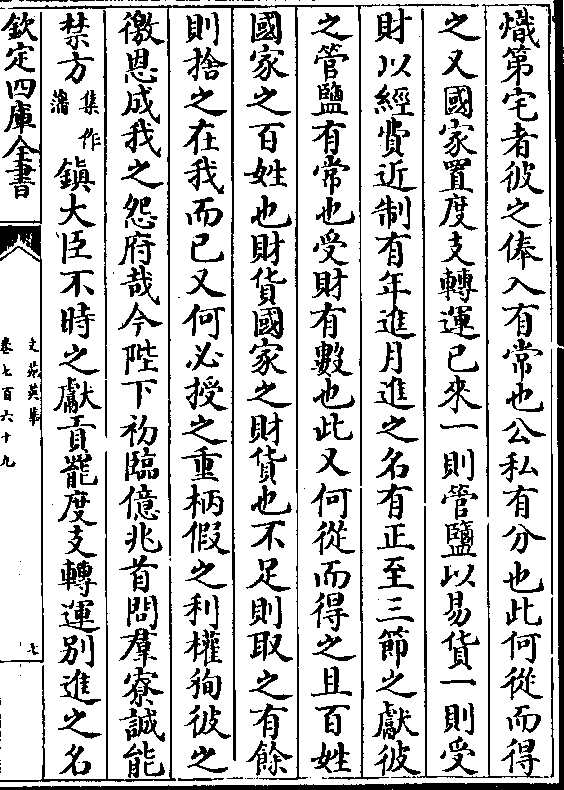 熾第宅者彼之俸入有常也公私有分也此何從而得
之又國家置度支轉運已來一則管鹽以易貨一則受
財以經費近制有年進月進之名有正至三節之獻彼
之管鹽有常也受財有數也此又何從而得之且百姓
國家之百姓也財貨國家之財貨也不足則取之有餘
則捨之在我而已又何必授之重柄假之利權殉彼之
徼恩成我之怨府哉今陛下初臨億兆首問羣寮誠能
禁方集作藩鎮大臣不時之獻貢罷度支轉運别進之名
欽定四庫全書
文苑英華
卷七百六十九
七